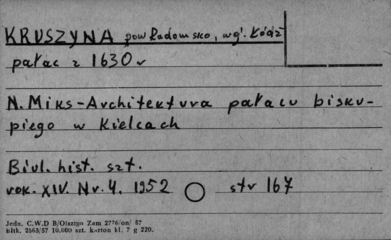 KRUSZYNA pow Radomsko, wg'. Łódź
pałac z 1630 r
N. Miks-Architektura pałacu bisku-
piego w Kielcach
Biul. hist. szt.
rok. XIV. Nr. 4. 1952 str 167
Jedn. C.W.D B/Olsztyn Zam 2776/on/ 57
bltk. 2663/57 10.000 szt. karton kl. 7 g 220.